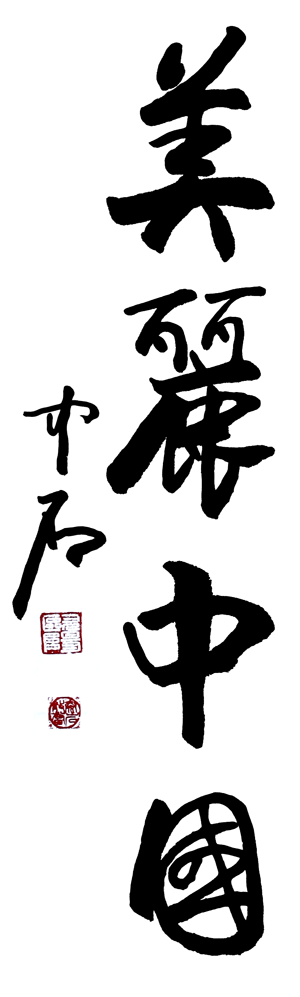 美麗中國
中石